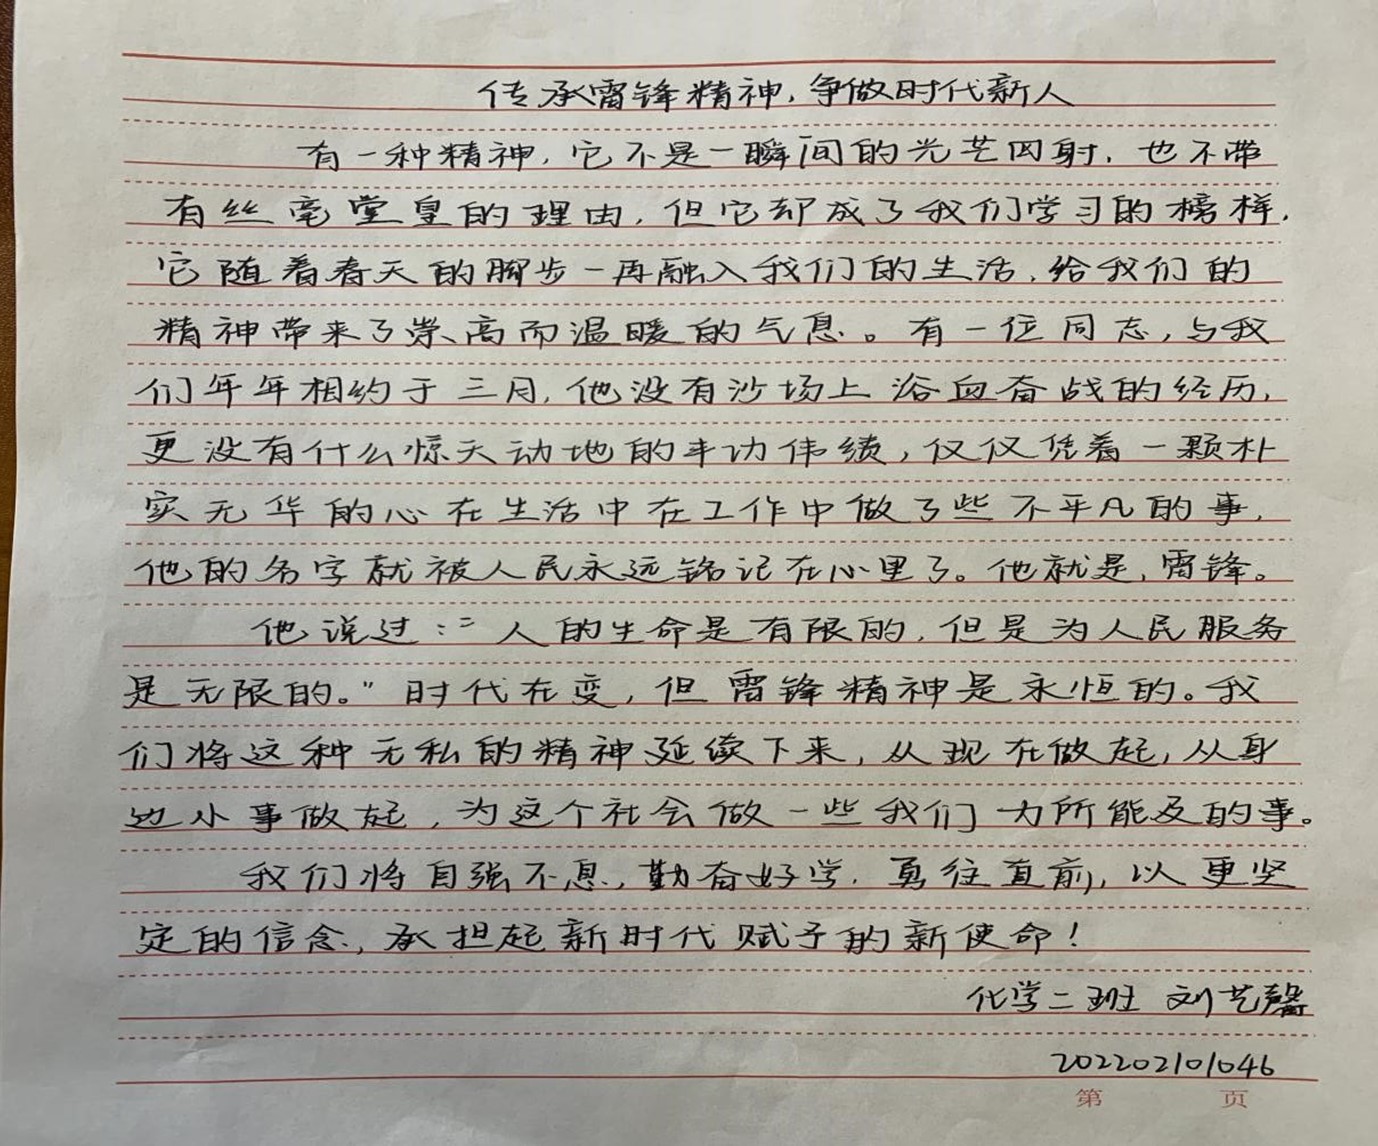 传承雷锋精神，争做时代新人
有一种精神，它不是一瞬间的光芒四射，也不带
有丝毫堂皇的理由，但它却成了我们学习的榜样，
它随着春天的脚步一再融入我们的生活，给我们的
精神带来了崇高而温暖的气息。有一位同志，与我
们年年相约于三月，他没有沙场上浴血奋战的经历，
更没有什么惊天动地的丰功伟绩，仅仅凭着一颗朴
实无华的心在生活中在工作中做了些不平凡的事，
他的名字就被人民永远铭记在心里了。他就是，雷锋。
他说过："人的生命是有限的，但是为人民服务
是无限的。"时代在变，但雷锋精神是永恒的。我
们将这种无私的精神延续下来，从现在做起，从身
边小事做起，为这个社会做一些我们力所能及的事。
我们将自强不息，勤奋好学，勇往直前，以更坚
定的信念，承担起新时代赋予的新使命！
化学二班 刘艺馨
202202101046
第 页